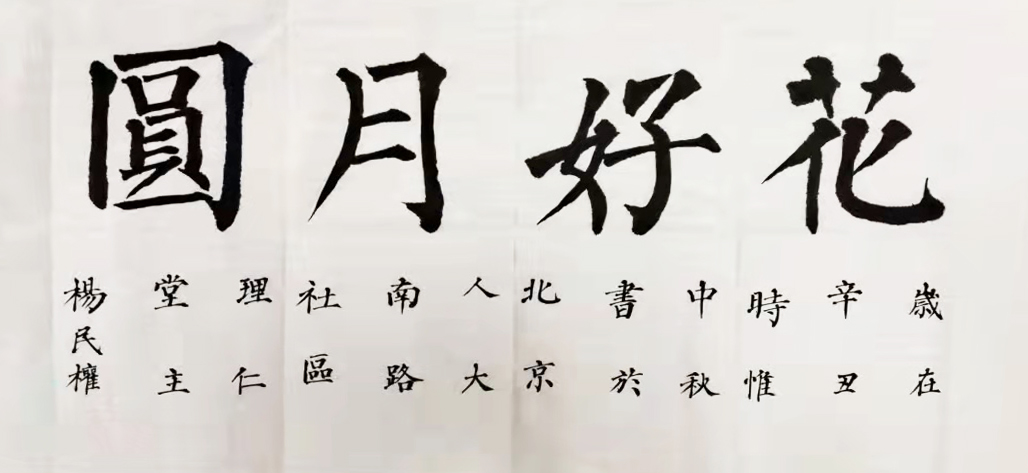 花好月圓
歲在
辛丑
時惟
中秋
書於
北京
人大
南路
社區
理仁
堂主
楊民權